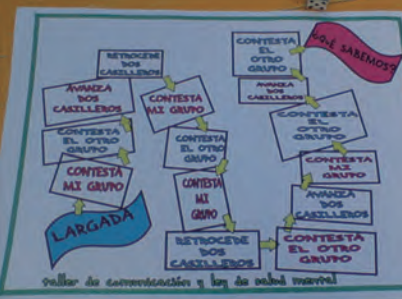 LARGADA
CONTESTA
MI GRUPO
CONTESTA
EL OTRO
GRUPO
AVANZA
DOS
CASILLEROS
RETROCEDE
DOS
CASILLEROS
CONTESTA
MI GRUPO
CONTESTA
EL OTRO
GRUPO
CONTESTA
MI
GRUPO
RETROCEDE
DOS
CASILLEROS
CONTESTA
EL OTRO
GRUPO
AVANZA
DOS
CASILLEROS
CONTESTA
MI
GRUPO
CONTESTA
EL OTRO
GRUPO
AVANZA
DOS
CASILLEROS
CONTESTA
EL
OTRO
GRUPO
¿QUÉ SABEMOS?
taller de comunicación y ley de salud mental